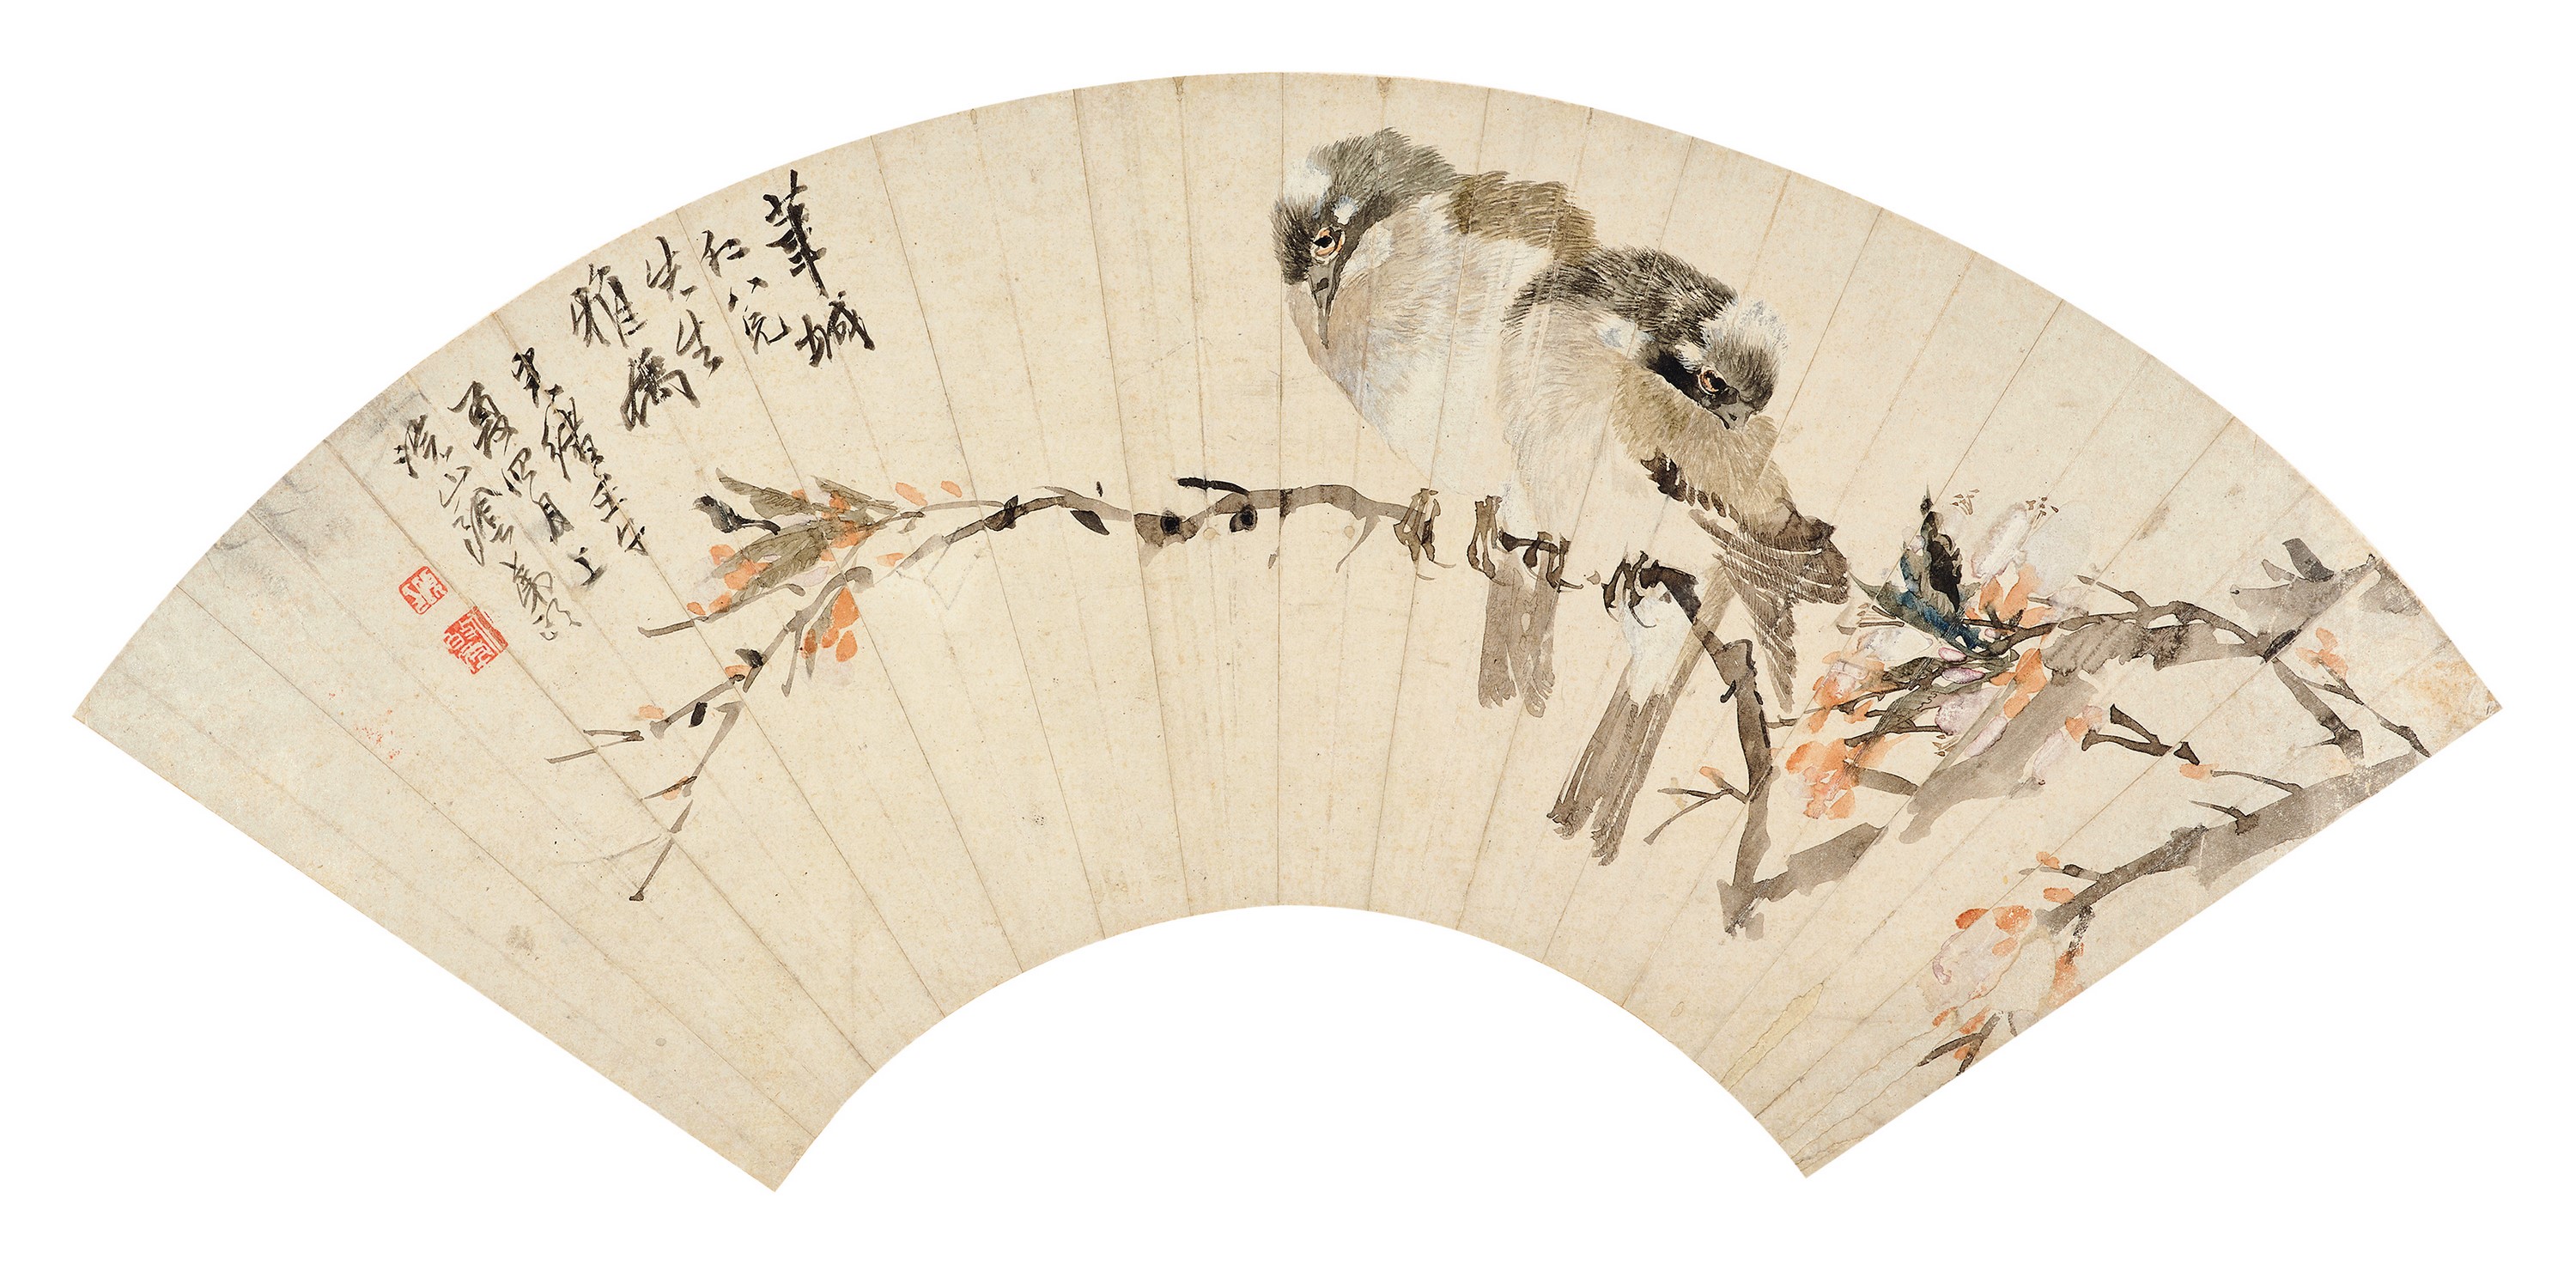 華城
仁八兄
先生
雅屬
光緒壬午
夏四月上
浣山陰任頤